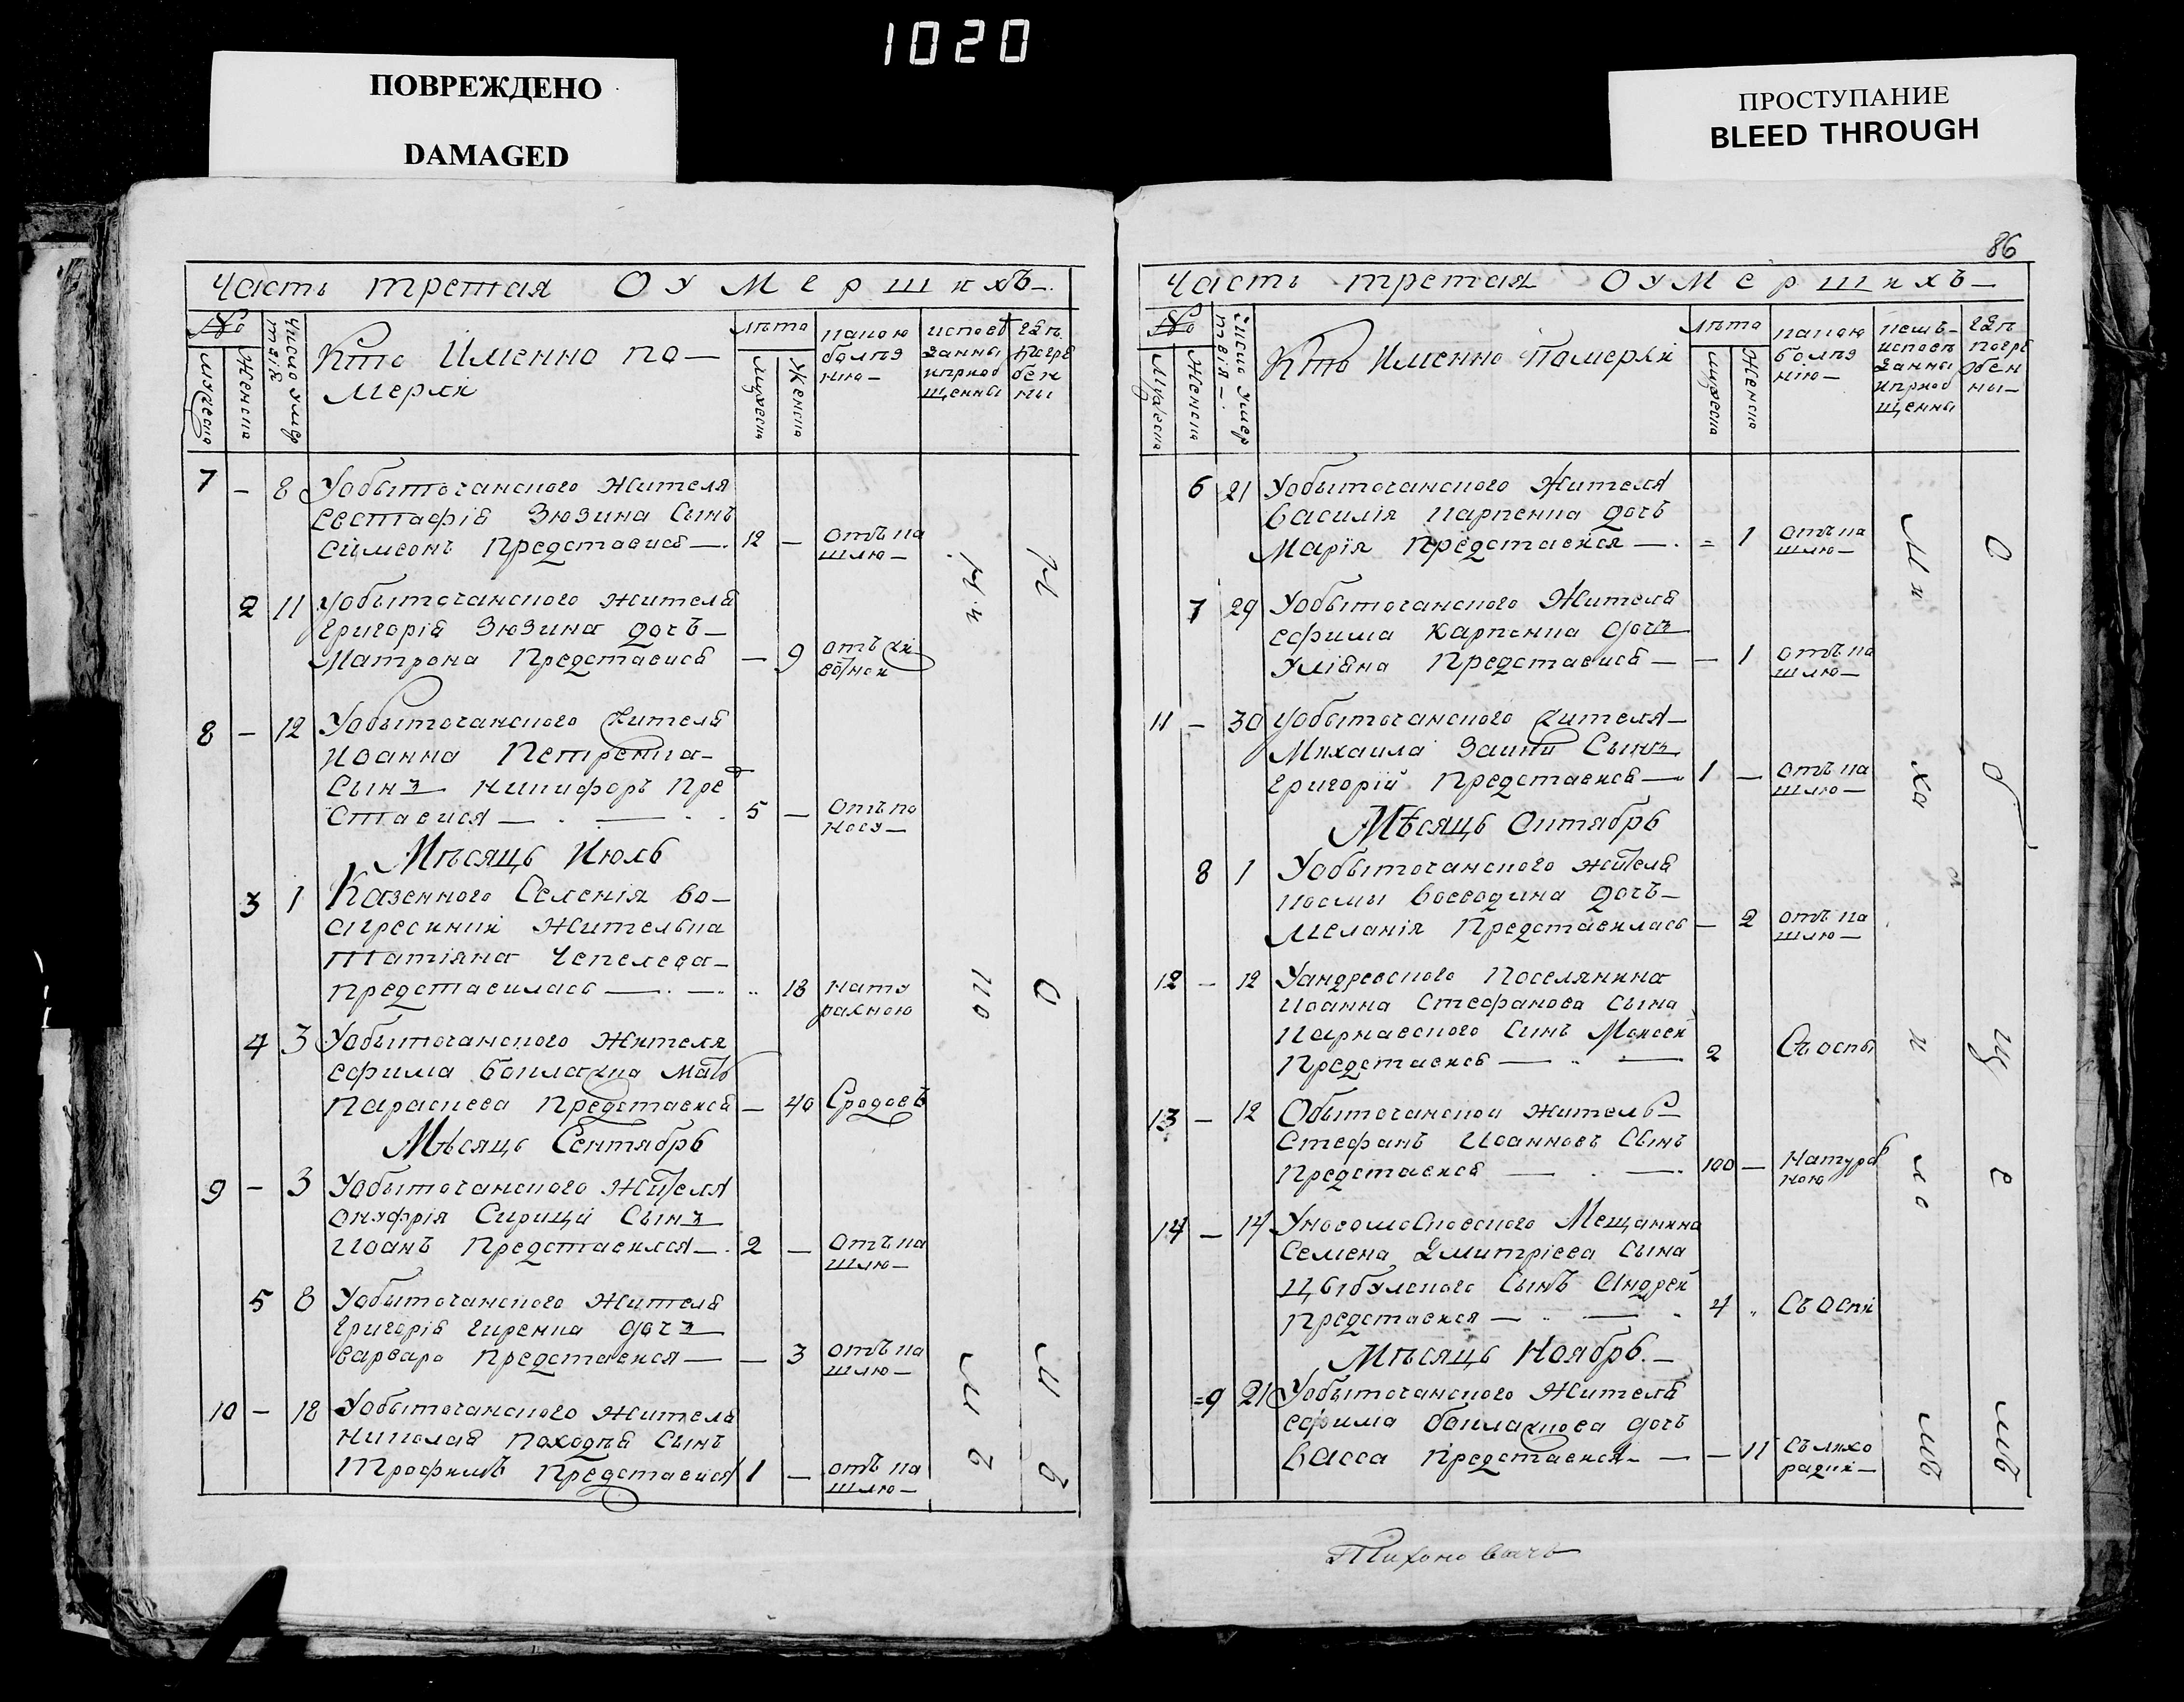 1020
ПОВРЕЖДЕНО
DAMAGED
ПРОСТУПАНИЕ
BLEED THROUGH
Часть третая О У М е р ш и х ъ
№
Мужеска
Женска
Число умер
твія
Кто Именно по-
мерли
лѣта
Мужеска
Женска
какою
болѣз
нію-
испове
данны
и приоб
щенны
Гдѣ
Погре
бен
ны
7 - 8 Уобыточанского Жителя
Евстафія Зюзина Сынъ
Сімеонъ Представися 12 - Отъ ка
шлю-
2 11 Уобыточанского жителя
Григорія Зюзина дочь-
Матрона Представися - 9
8 - 12 Уобыточанского Жителя
Иоанна Петренка-
Сынъ Никифоръ Пред
ставися 5 - Отъ по
носу-
Мѣсяцъ Июль
3 1 Казенного Селенія Во-
скресенки Жителька
Татіяна Чепелева-
Представилась 18 Нату
ралною
4 3 Уобыточанского Жителя
Ефима Баклажка Мать
Параскева Представися - 40 Сродовъ
Мѣсяцъ Сентябрь
9 - 3 Уобыточанского Жителя
Онуфрія Сирицы Сынъ
Иоанъ Представился 2 - Отъ ка
шлю-
5 8 Уобыточанского Жителя
Григорія Гиренка дочь
Варвара Представися - 3 Отъ ка
шлю-
10 - 18 Уобыточанского Жителя
Николая Походня Сынъ
Трофимъ Представися 1 - Отъ ка
шлю-
86
Часть третая О У М е р ш и х ъ -
№
Мужеска
Женска
Число Умер
твія-
Кто Именно Померли
лѣта
мужеска
Женска
какою
болѣз
нію-
кемъ-
исповѣ
данны
и приоб
щенны
Гдѣ
погре
бен
ны-
6 21 Уобыточанского Жителя
Василія Карпенка дочь
Марія Представися = 1 Отъ ка
шлю-
7 29 Уобыточанского Жителя
Ефима Карпенка дочь
Уліяна Представися - 1 Отъ ка
шлю-
11 - 30 Уобыточанского Жителя-
Михаила Заики Сынъ
Григорій Представися 1 - Отъ ка
шлю-
Мѣсяцъ Октябрь
8 1 Уобыточанского жителя
Космы Воеводина дочь-
Меланія Представилась - 2 Отъ ка
шлю-
12 - 12 Уандревского Поселянина
Иоанна Стефанова Сына
Карнавского Сынъ Моисей
Представися 2 Съ оспы
13 - 12 Обыточанской житель
Стефанъ Иоанновъ Сынъ
Представися 100 - Натурал
ною
14 - 14 Уновомосковского Мещанина
Семена Дмитріева Сына
Цыбулского Сынъ Андрей
Представися 4 Съ Оспи
Мѣсяцъ Ноябрь
9 21 Уобыточанского Жителя
Ефима Баклажкова дочь
Васса Представися - 11 Съ лихо
радки-
Тихоновичъ